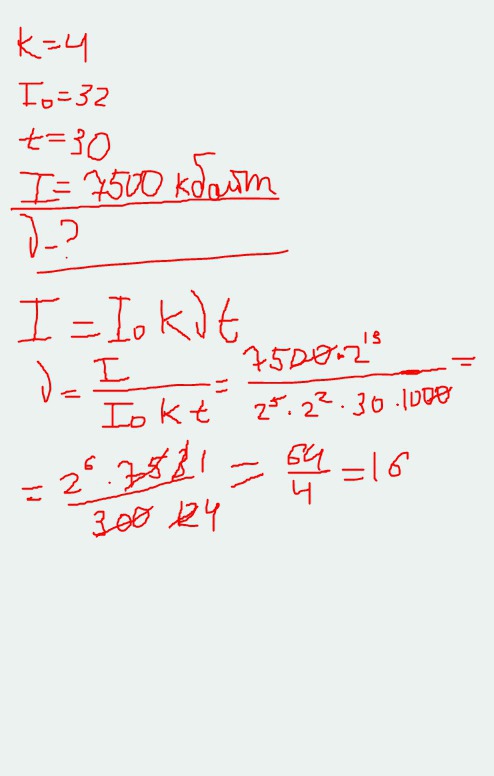 k=4
I₀=32
t=30
I=7500 кбайт
ν-?
I=I₀kνt
ν = I / I₀kt = 7500·2¹³ / 2⁵·2²·30·1000 =
= 2⁶·75 1 / 300 12 4 = 64/4 = 16